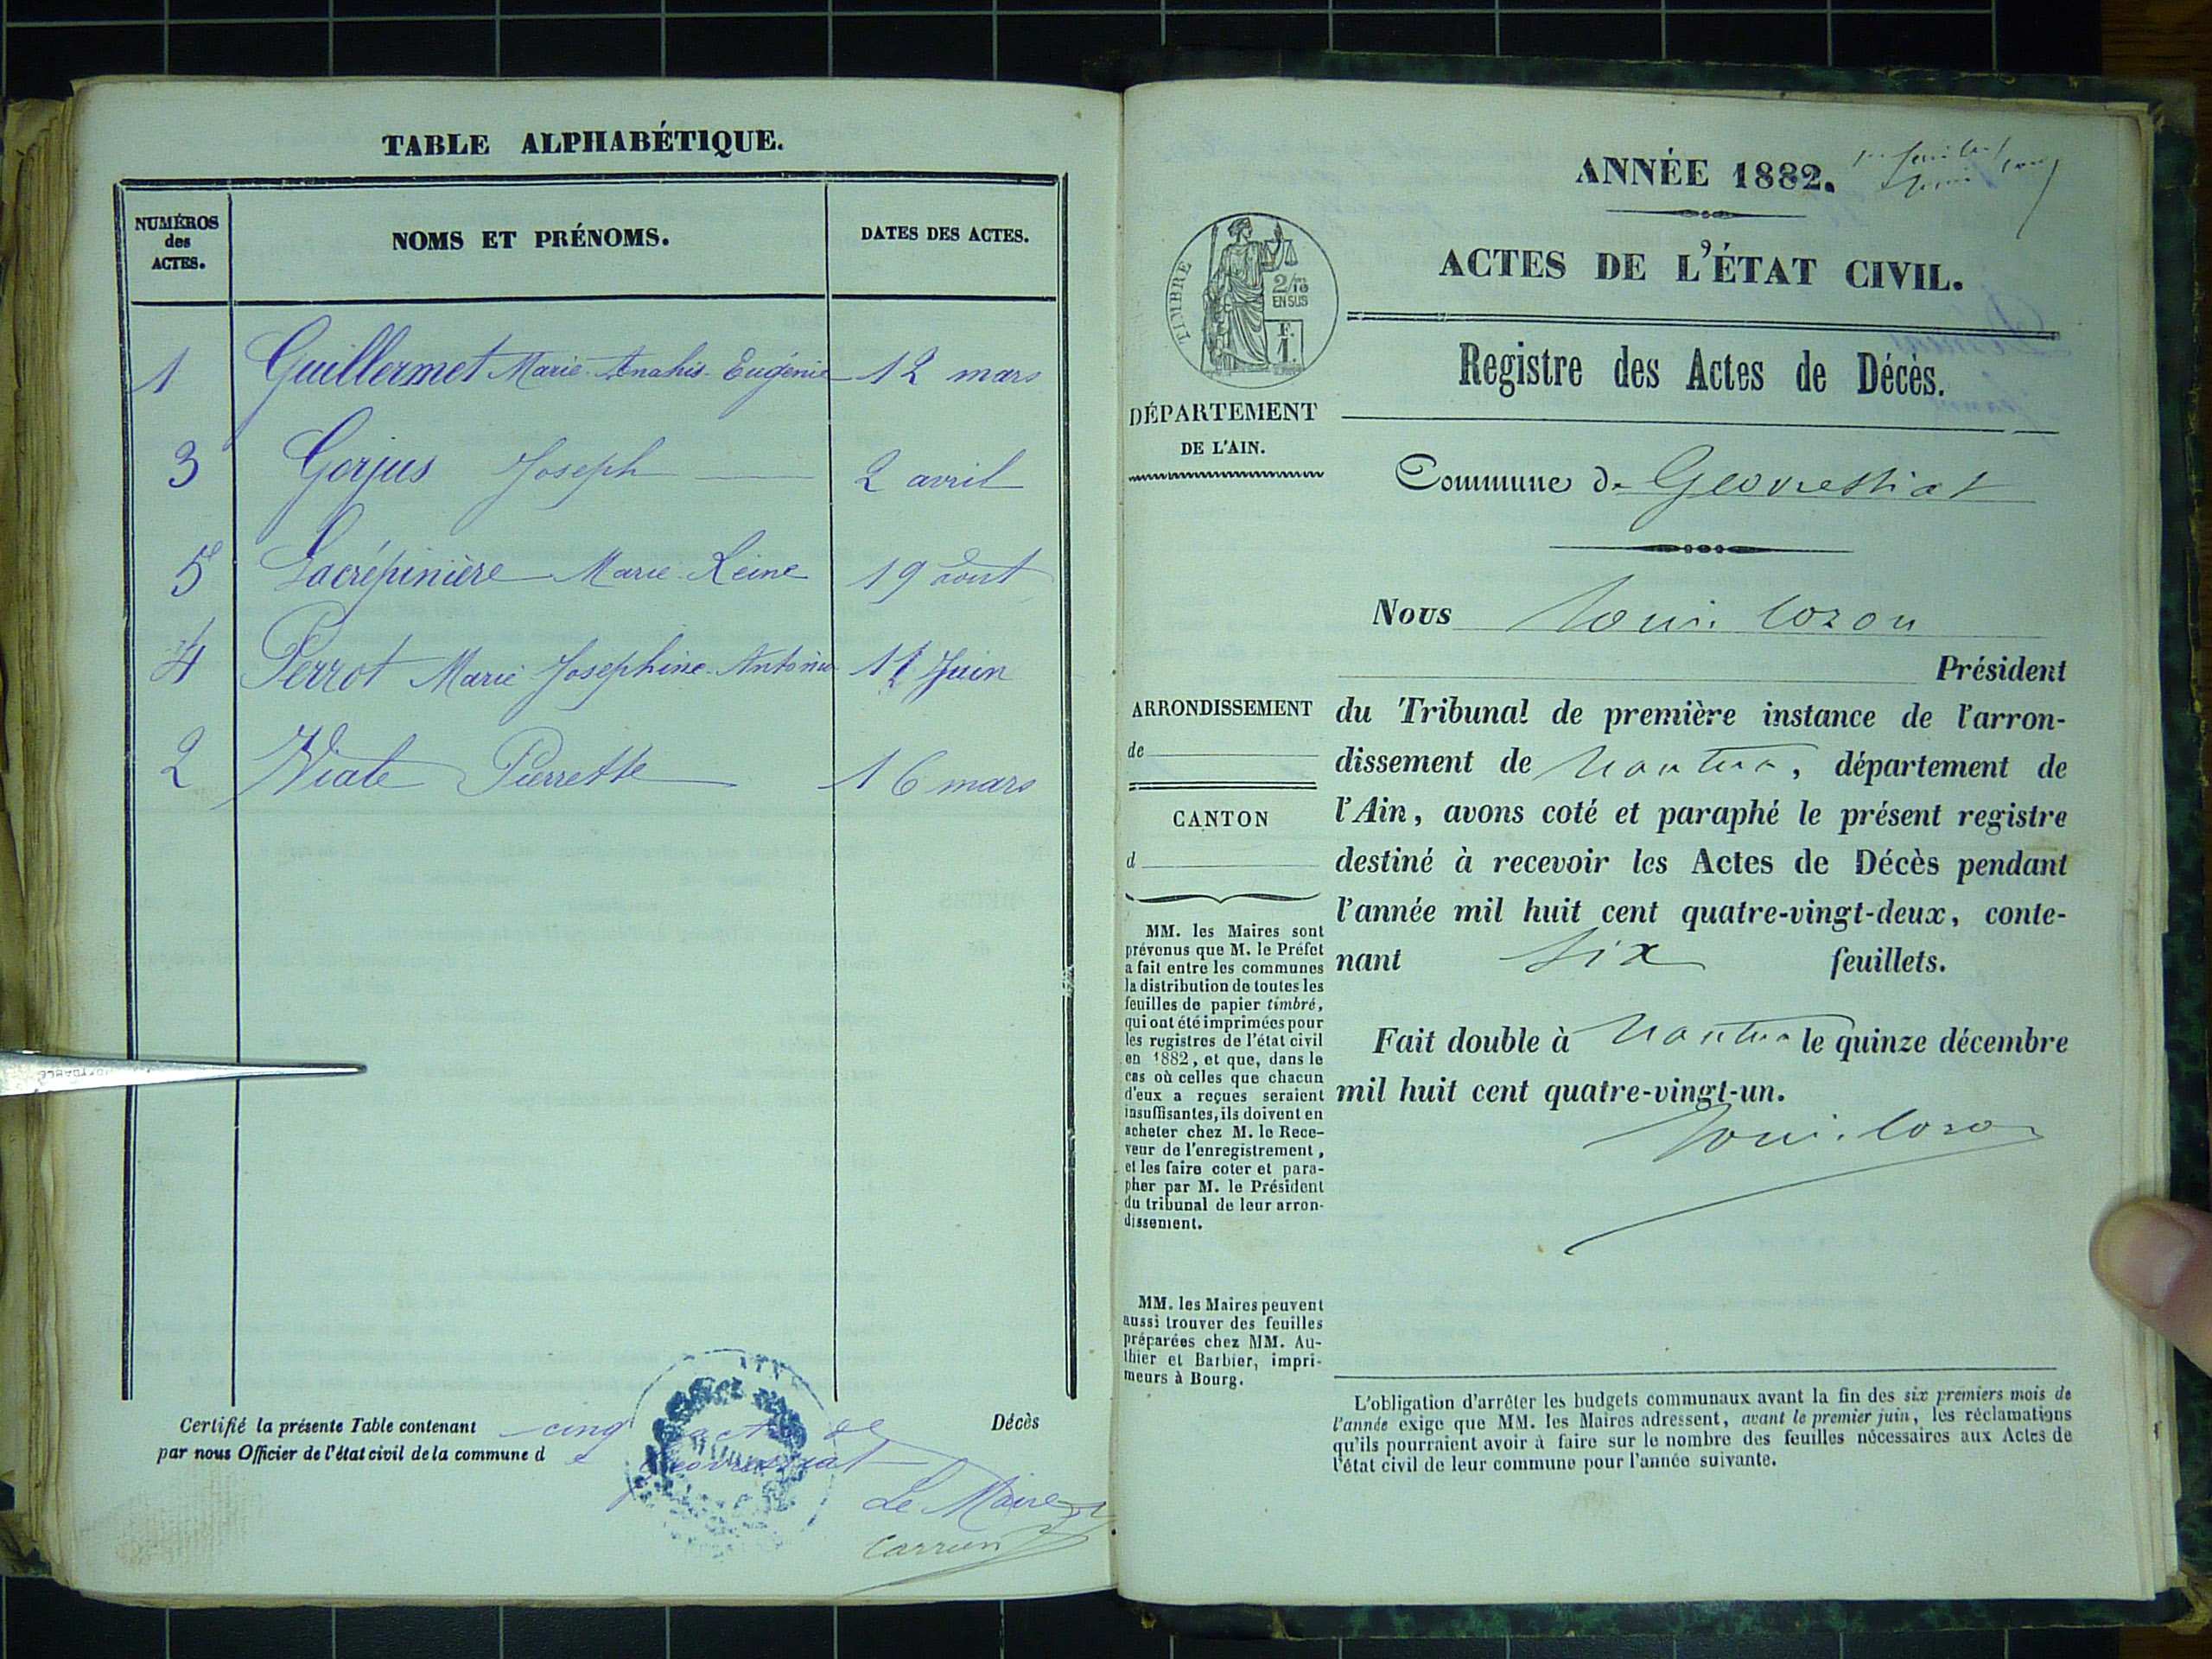 TABLE ALPHABÉTIQUE.
NUMÉROS des ACTES.
NOMS ET PRÉNOMS.
DATES DES ACTES.
1 Guillermet Marie Anahis Eugénie 12 mars
3 Gorjus Joseph 2 avril
5 Lacrépinière Marie Reine 19 aout
4 Perrot Marie Josephine Antonie 11 Juin
2 Viale Pierrette 16 mars
Certifié la présente Table contenant cinq actes de Décès
par nous Officier de l'état civil de la commune d e Géovressiat
Le Maire
Carrier
ANNÉE 1882.
1er feuillet
ACTES DE L'ÉTAT CIVIL.
TIMBRE
2/10
EN SUS
F.
1.
Registre des Actes de Décès.
DÉPARTEMENT
DE L'AIN.
Commune de Géovressiat
Nous
Président
ARRONDISSEMENT
de
CANTON
d
du Tribunal de première instance de l'arron-
dissement de Nantua, département de
l'Ain, avons coté et paraphé le présent registre
destiné à recevoir les Actes de Décès pendant
l'année mil huit cent quatre-vingt-deux, conte-
nant six feuillets.
Fait double à Nantua le quinze décembre
mil huit cent quatre-vingt-un.
MM. les Maires sont
prévenus que M. le Préfet
a fait entre les communes
la distribution de toutes les
feuilles de papier timbré,
qui ont été imprimées pour
les registres de l'état civil
en 1882, et que, dans le
cas où celles que chacun
d'eux a reçues seraient
insuffisantes, ils doivent en
acheter chez M. le Rece-
veur de l'enregistrement,
et les faire coter et para-
pher par M. le Président
du tribunal de leur arron-
dissement.
MM. les Maires peuvent
aussi trouver des feuilles
préparées chez MM. Au-
thier et Barbier, impri-
meurs à Bourg.
L'obligation d'arrêter les budgets communaux avant la fin des six premiers mois de
l'année exige que MM. les Maires adressent, avant le premier juin, les réclamations
qu'ils pourraient avoir à faire sur le nombre des feuilles nécessaires aux Actes de
l'état civil de leur commune pour l'année suivante.